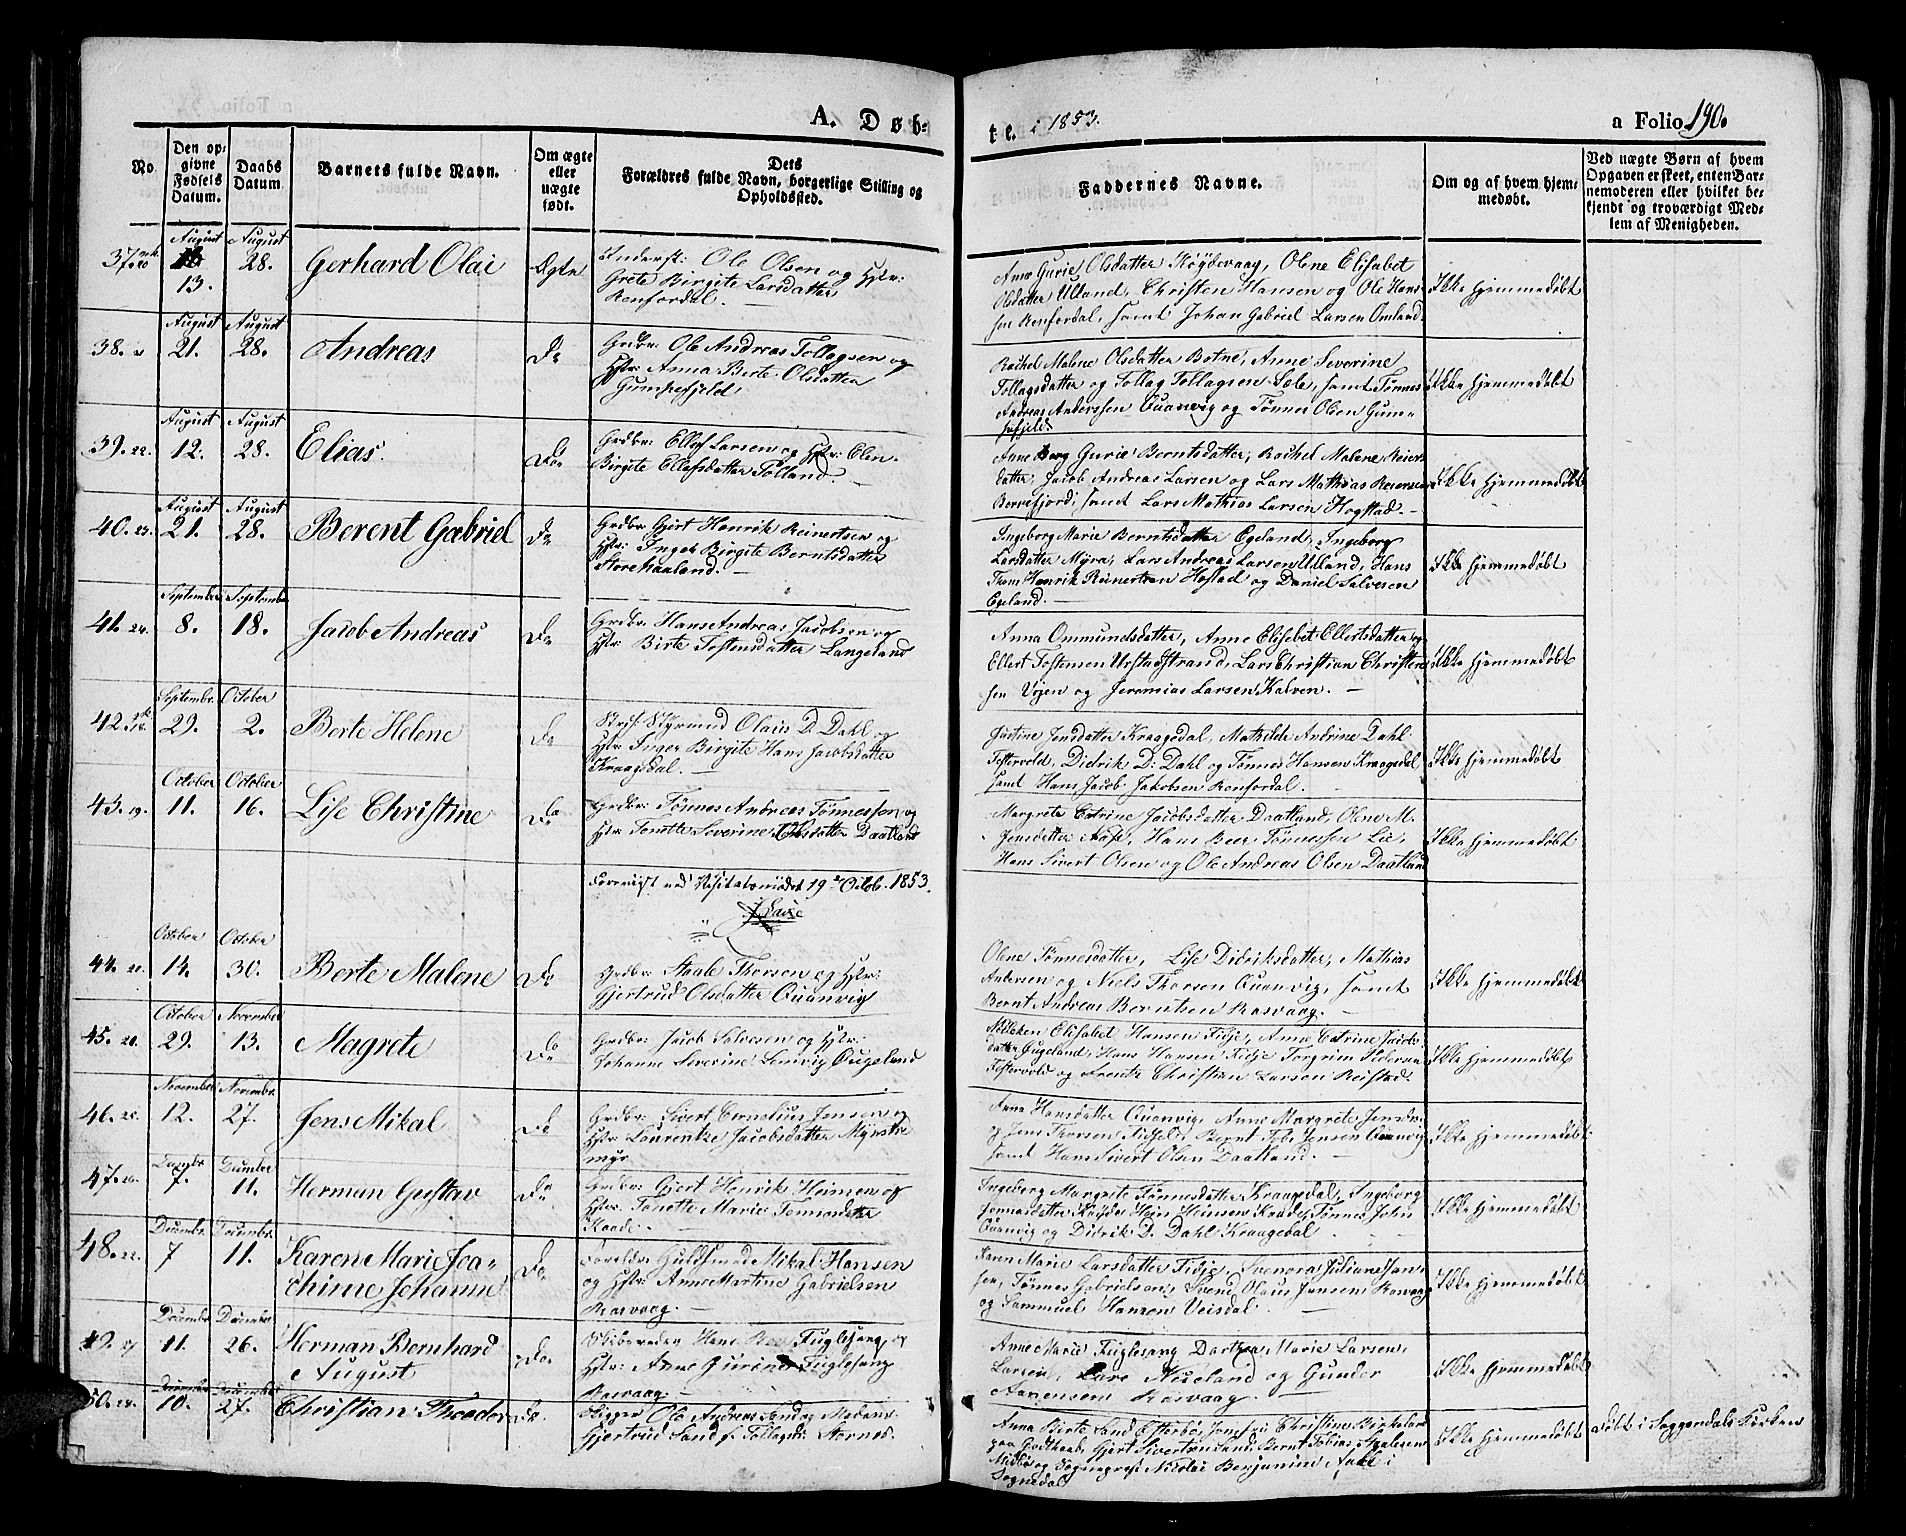 A. Døb-
te. i 1853.
a Folio 190.
No.
Den op-
givne
Fødsels
Datum.
Daabs
Datum
Barnets fulde Navn.
Om ægte
eller
uægte
født.
Dets
Forældres fulde Navn, borgerlige Stilling og
Opholdssted.
Faddernes Navne.
Om og af hvem hjem-
medøbt.
Ved uægte Børn af hvem
Opgaven er skeet, enten Bar-
nemoderen eller hvilket be-
kjendt og troværdigt Med-
lem af Menigheden.
37.
August
13.
August
28.
Gerhard Olai
Ægte
Inderst: Ole Olsen og Hstr:
Grete Birgite Larsdatter
Renfordal. —
Anne Gurie Olsdatter Røydevaag, Olene Elisabet
Olsdatter Ulland, Christen Hansen og Ole Han-
sen Renfordal, samt Johan Gabriel Larsen Omland.
Ikke hjemmedøbt
38.
August
21.
August
28.
Andreas
Do
Grdbr: Ole Andreas Tollagsen og
Hstr: Anna Berte Olsdatter
Gumpefjeld
Rachel Malene Olsdatter Botne, Anne Severine
Tollagsdatter og Tollag Tollagsen Sæle, samt Tønnes
Andreas Anderssen Quanvig og Tønnes Olsen Gum-
pefjeld.
Ikke hjemmedøbt
39. 22.
August
12.
August
28.
Elias.
Do
Grdbr: Ellef Larsen og Hstr: Elen
Birgite Ellefsdatter Tolland. —
Anne Gurie Berntsdatter, Rachel Malene Reiers-
datter, Jacob Andreas Larsen og Lars Mathias Reiersen
Berrefjord, samt Lars Mathias Larsen Hogstad. —
Ikke hjemmedøbt
40. 23.
August
21.
August
28.
Berent Gabriel
Do
Grdbr Gjert Henrik Reinertsen og
Hstr: Inger Birgite Berntsdatter
Storehaaland. —
Ingeborg Marie Berntsdatter Egeland, Ingeborg
Larsdatter Myra, Lars Andreas Larsen Ulland, Hans
Henrik Reinertsen Hostad og Daniel Salvesen
Egeland. —
Ikke hjemmedøbt
41. 24.
September
8.
September
18.
Jacob Andreas
Do
Grdbr: Hans Andreas Jacobsen og
Hstr: Birte Tostensdatter Langeland
Anna Ommundsdatter, Anne Elisebet Ellertsdatter og
Ellert Tostensen Urstadstrand, Lars Christian Christen-
sen Vøjen og Jeremias Larsen Kalven. —
Ikke hjemmedøbt
42.
Septembr.
29.
October
2.
Berte Helene
Do
Olaus D. Dahl og
Hstr Inger Birgite Hans Jacobsdatter
Kraagedal. —
Justine Jensdatter Kraagedal, Mathilde Andrine Dahl
Festervold, Didrik D. Dahl og Tønnes Hansen Kraagedal
samt Hans Jacob Jakobsen Renfordal. —
Ikke hjemmedøbt
43. 19.
October
11.
October
16.
Lise Christine
Do
Grdbr: Tønnes Andreas Tønnessen og
Hstr Tonette Severine Olsdatter Daatland
Margrete Catrine Jacobsdatter Daatland, Olene M.
Jensdatter Aase, Hans Beer Tønnessen Lie,
Hans Sivert Olsen og Ole Andreas Olsen Daatland
Ikke hjemmedøbt
Foreviist ved Visitatsmødet 19de Octob. 1853.
44.
October
14.
October
30.
Berte Malene
Do
Grdbr: Staale Thorsen og Hstr:
Gjertrud Olsdatter Quanvig
Olene Tønnesdatter, Lise Didriksdatter, Mathias
Andersen og Niels Thorsen Quanvig, samt
Bernt Andreas Berntsen Rasvaag. —
Ikke hjemmedøbt
45.
October
29.
November
13.
Magrete
Do
Grdbr: Jacob Salvesen og Hstr:
Johanne Severine Lenvig Øugeland
Elisabet Hansen Fidje, Ane Catrine Jacobs-
datter Øugeland, Hans Hansen Fidje Torgrim Pedersen
Festervold og Frentz Christian Larsen Reistad.
Ikke hjemmedøbt
46. 25.
November
12.
Novembr.
27.
Jens Mikal
Do
Grdbr: Sivert Cornelius Jensen og
Hstr: Laurentze Jacobsdatter
myr.
Anna Hansdatter Quanvig, Anne Margrete Jensdr.
og Jens Thorsen Fidsel, Bernt Jensen Quanvig
samt Hans Sivert Olsen Daatland.
Ikke hjemmedøbt
47. 26.
Decmbr.
7.
Decmber
11.
Herman Gustav
Do
Grdbr: Gjert Henrik Heinsen og
Hstr: Tonette Marie Tønnesdatter
Kaade. —
Ingeborg Margrete Tønnesdatter Kraagedal, Ingeborg
Heinsen Kaade, Tønnes John
Quanvig og Didrik D. Dahl Kraagedal
Ikke hjemmedøbt
48. 22.
Decmbr.
7
Decembr.
11.
Karen Marie Joa-
chime Johanne
Do
Foreldr: Guldsmed Mikal Hansen
og Hstr: Anne Martine Gabrielsen
Rasvaag. —
Karen Marie Larsdatter Fidje, Svenora Juliane Jan-
sen, Tønnes Gabrielsen, Svend Olaus Jensen Rasvaag
og Sammuel Hansen Veisdal. —
Ikke hjemmedøbt
49. 27
Decembr
11.
Decembr
26.
Herman Bernhard
August
Do.
Hans Beer Fuglesang og
Hstr: Anne Gurine Fuglesang
Rasvaag —
Anne Marie Fuglesang Dorthea Marie Larsen,
Larsen, Lars Nueland og Gunder
Aanensen Rasvaag. —
Ikke hjemmedøbt
50. 28.
Decmbr
10.
Decembr
27.
Christian Theodor
Do.
Ole Andreas Sand og Madam
Gjertrud Sand f. Tollagsdr Stornes.
Anna Birte Sand Efterbø, Jomfru Christine Birkeland
paa Godthaab, Gjert Sivertsen Sand, Bernt Tobias Staalesen
Midbø og Sogneprest Nicolai Benjamin Aall i
Sognedal
Ikke hjemmedøbt
døbt i Soggendals Kirken